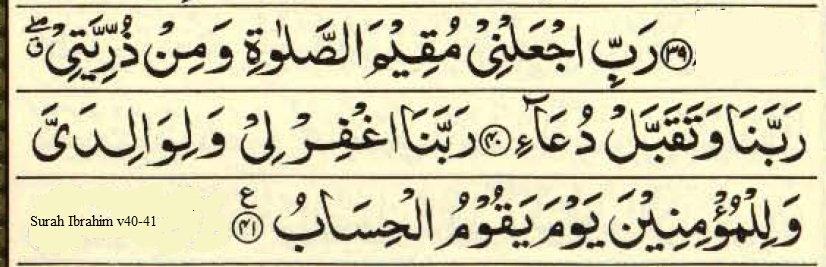 ﴿۳۹﴾ رَبِّ اجْعَلْنِیْ مُقِیْمَ الصَّلٰوةِ وَ مِنْ ذُرِّیَّتِیْ ۖۗ
رَبَّنَا وَ تَقَبَّلْ دُعَآءِ ﴿۴۰﴾ رَبَّنَا اغْفِرْ لِیْ وَ لِوَالِدَیَّ
وَ لِلْمُؤْمِنِیْنَ یَوْمَ یَقُوْمُ الْحِسَابُ ﴿۴۱﴾ ع
Surah Ibrahim v40-41